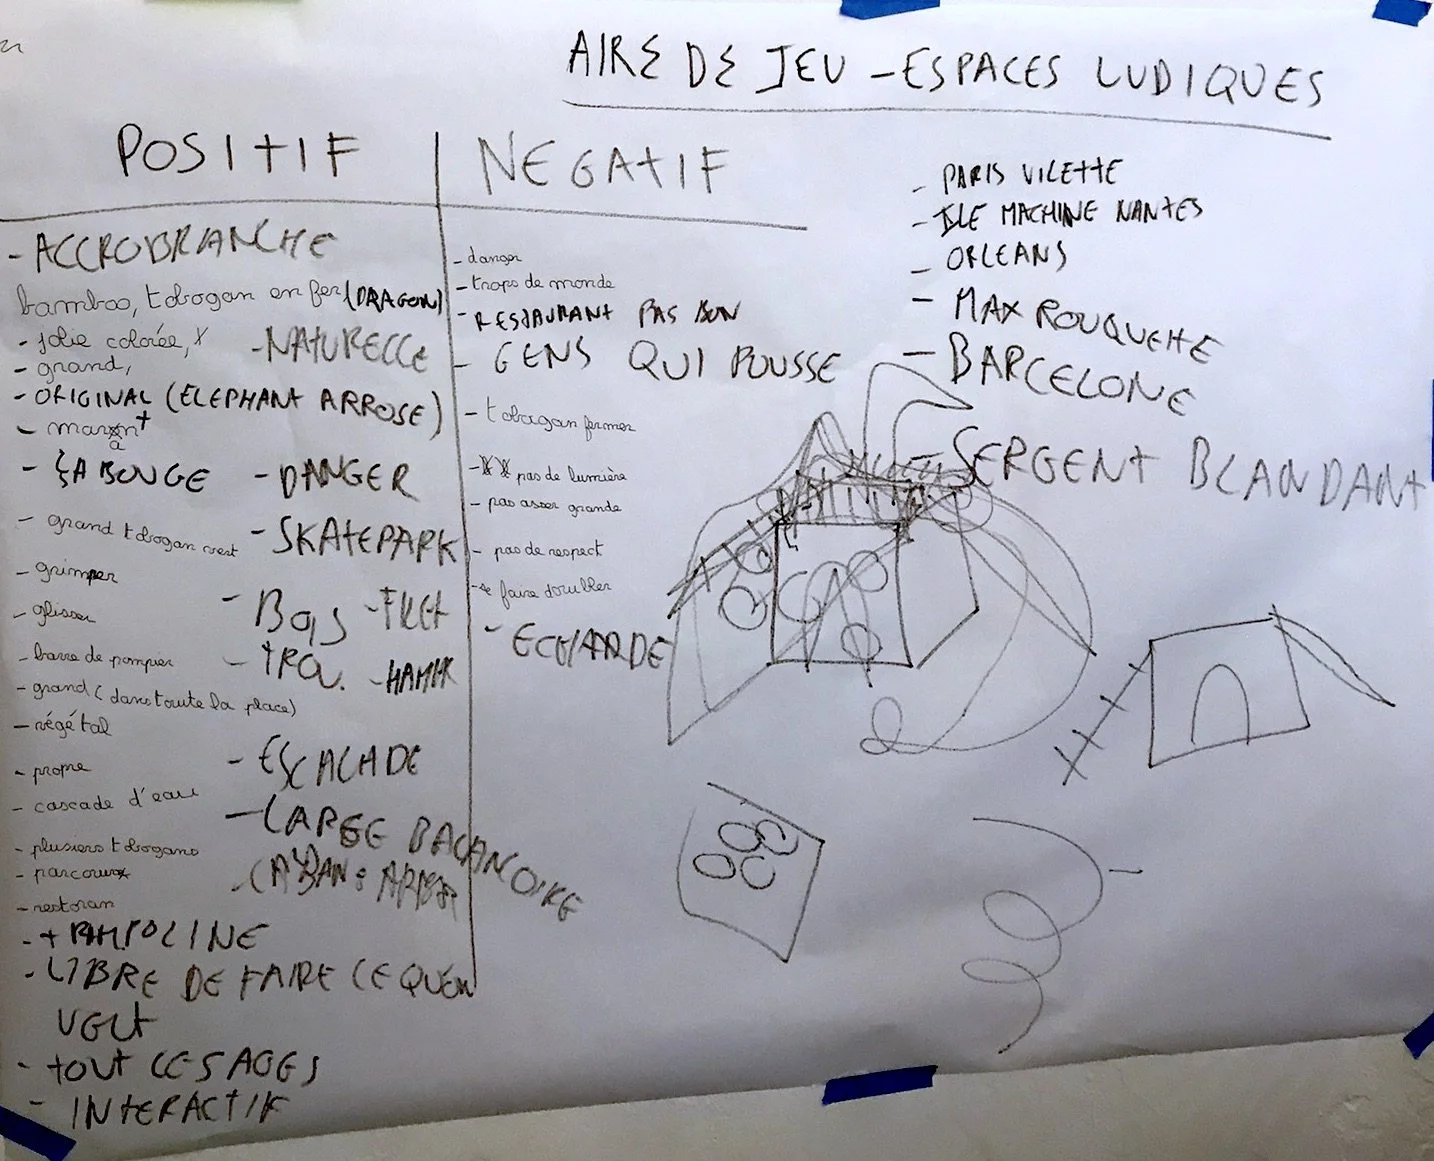 AIRE DE JEU - ESPACES LUDIQUES
POSITIF
- ACCROBRANCHE
bamboo, tobogan en fer (DRAGON)
- jolie colorée,
- NATURELLE
- grand,
- ORIGINAL (ELEPHANT ARROSE)
- ÇA BOUGE
- DANGER
- grand tobogan vert
- SKATEPARK
- grimper
- glisser
- BOIS
- FILET
- barre de pompier
- grand (dans toute la place)
- végétal
- propre
- ESCALADE
- cascade d'eau
- LARGE BALANCOIRE
- plusiers tobogans
- parcours
- restoran
- TRAMPOLINE
- LIBRE DE FAIRE CE QU'ON
VEUT
- TOUT LES AGES
- INTERACTIF
NEGATIF
- danger
- trops de monde
- RESTAURANT PAS BON
- GENS QUI POUSSE
- tobagan fermer
- pas de lumière
- pas asser grande
- pas de respect
- faire doubler
- ECHARDE
- PARIS VILETTE
- ISLE MACHINE NANTES
- ORLEANS
- MAX ROUQUETTE
- BARCELONE
- SERGENT BLANDANT